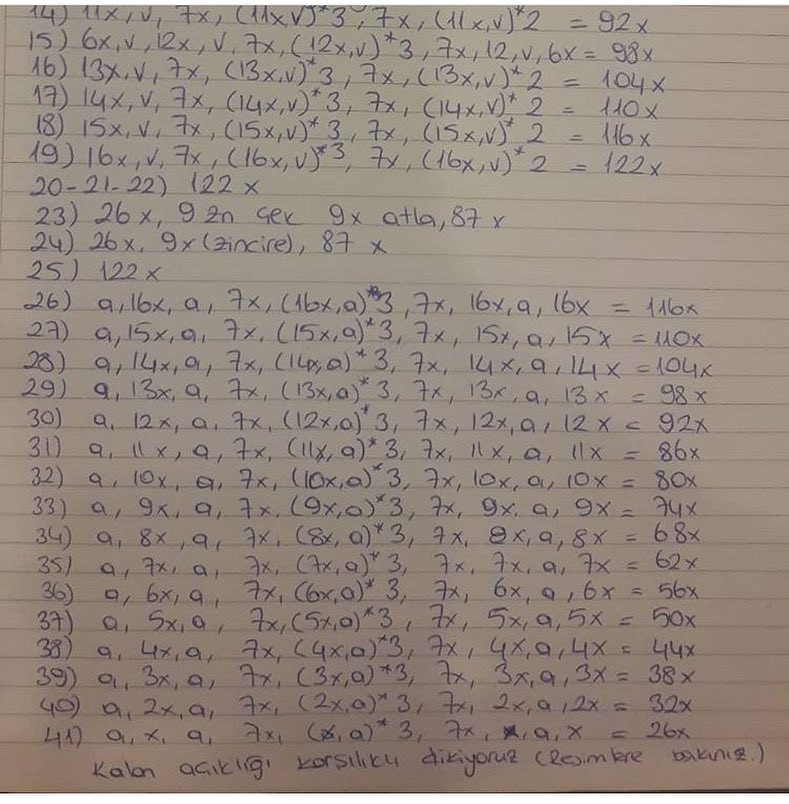 14) 11x, v, 7x, (11x,v)*3, 7x, (11x,v)*2 = 92x
15) 6x,v,12x, v, 7x, (12x,v)*3, 7x, 12,v,6x = 98x
16) 13x,v, 7x, (13x,v)*3, 7x, (13x,v)*2 = 104x
17) 14x,v, 7x, (14x,v)*3, 7x, (14x,v)*2 = 110x
18) 15x,v, 7x, (15x,v)*3, 7x, (15x,v)*2 = 116x
19) 16x,v, 7x, (16x,v)*3, 7x, (16x,v)*2 = 122x
20-21-22) 122x
23) 26x, 9 zn çek 9x atla, 87x
24) 26x, 9x (zincire), 87 x
25) 122x
26) a,16x, a, 7x, (16x,a)*3, 7x, 16x,a, 16x = 116x
27) a,15x,a, 7x, (15x,a)*3, 7x, 15x,a, 15x = 110x
28) a,14x,a, 7x, (14x,a)*3, 7x, 14x,a,14x = 104x
29) a, 13x,a, 7x, (13x,a)*3, 7x, 13x, a, 13x = 98x
30) a, 12x, a, 7x, (12x,a)*3, 7x, 12x,a, 12x = 92x
31) a, 11x, a, 7x, (11x,a)*3, 7x, 11x, a, 11x = 86x
32) a, 10x, a, 7x, (10x,a)*3, 7x, 10x, a, 10x = 80x
33) a, 9x, a, 7x, (9x,a)*3, 7x, 9x, a, 9x = 74x
34) a, 8x, a, 7x, (8x, a)*3, 7x, 8x, a, 8x = 68x
35) a, 7x, a, 7x, (7x,a)*3, 7x, 7x, a, 7x = 62x
36) a, 6x, a, 7x, (6x,a)*3, 7x, 6x, a, 6x = 56x
37) a, 5x,a, 7x, (5x,a)*3, 7x, 5x,a,5x = 50x
38) a, 4x,a, 7x, (4x,a)*3, 7x, 4x,a,4x = 44x
39) a, 3x,a, 7x, (3x,a)*3, 7x, 3x,a,3x = 38x
40) a, 2x,a, 7x, (2x,a)*3, 7x, 2x,a,2x = 32x
41) a, x, a, 7x, (x,a)*3, 7x, x, a, x = 26x
Kalan açıklığı karşılıklı dikiyoruz (Resimlere bakınız.)